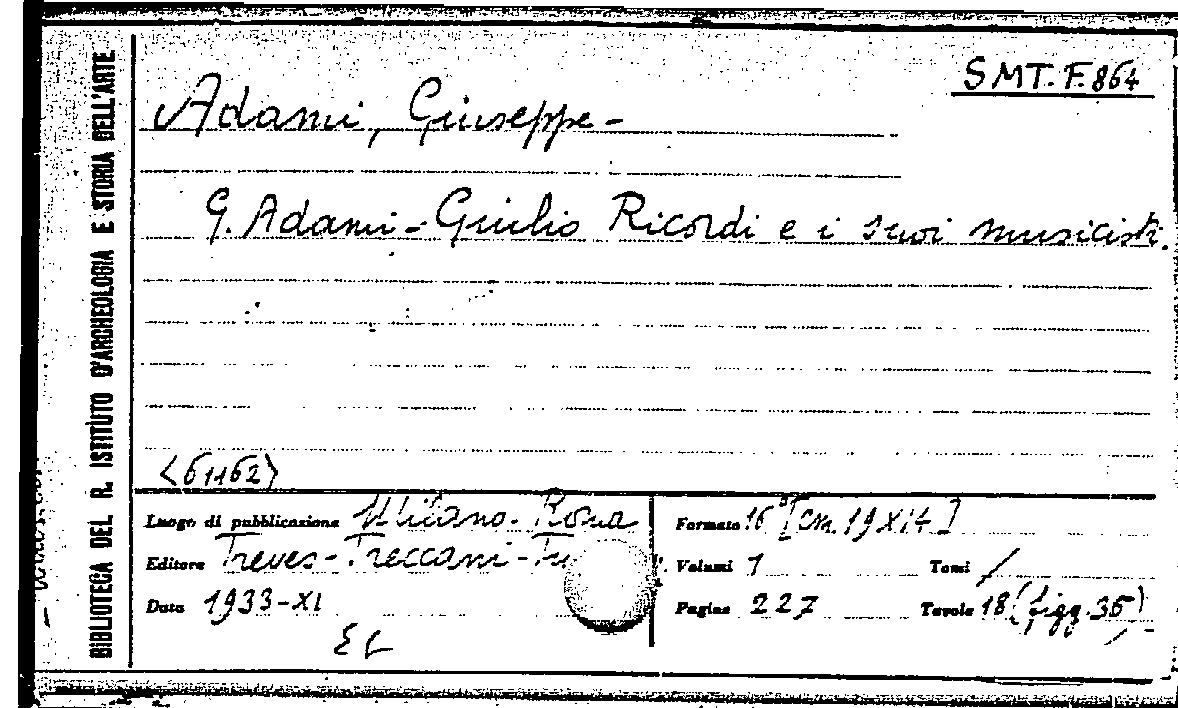 BIBLIOTECA DEL R. ISTITUTO D'ARCHEOLOGIA E STORIA DELL'ARTE
SMT. F. 864
Adami, Giuseppe-
G. Adami-Giulio Ricordi e i suoi musicisti.
<61162>
Luogo di pubblicazione Milano-Roma
Editore Treves-Treccani-Tu
Data 1933-XI
Formato 16° [cm. 19x14]
Volumi 1 Tomi /
Pagine 227 Tavole 18 (figg. 35)